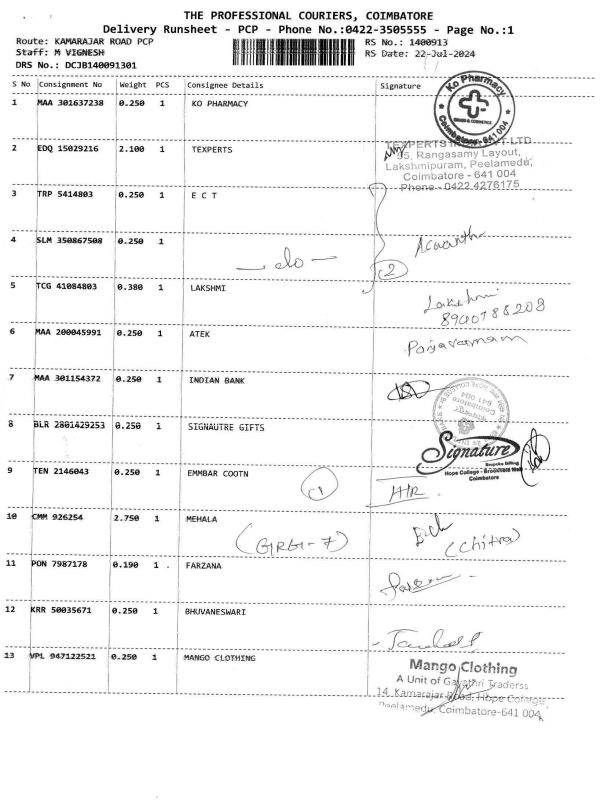 THE PROFESSIONAL COURIERS, COIMBATORE
Delivery Runsheet - PCP - Phone No.:0422-3505555 - Page No.:1
Route: KAMARAJAR ROAD PCP RS No.: 1400913
Staff: M VIGNESH RS Date: 22-Jul-2024
DRS No.: DCJB140091301
S No Consignment No Weight PCS Consignee Details Signature
1 MAA 301637238 0.250 1 KO PHARMACY
Ko Pharmacy
Coimbatore - 641 004
2 EDQ 15029216 2.100 1 TEXPERTS
95, Rangasamy Layout,
Lakshmipuram, Peelamedu,
Coimbatore - 641 004
Phone - 0422 4276175
3 TRP 5414803 0.250 1 E C T
4 SLM 350867508 0.250 1
- do - 2
5 TCG 41084803 0.380 1 LAKSHMI
Lakshmi
6 MAA 200045991 0.250 1 ATEK
7 MAA 301154372 0.250 1 INDIAN BANK
8 BLR 2801429253 0.250 1 SIGNAUTRE GIFTS
Signature
Bespoke Gifting
Hope College - Brookfield Mall
Coimbatore
9 TEN 2146043 0.250 1 EMMBAR COOTN
1
10 CMM 926254 2.750 1 MEHALA
(Chitra)
11 PON 7987178 0.190 1 . FARZANA
12 KRR 50035671 0.250 1 BHUVANESWARI
13 VPL 947122521 0.250 1 MANGO CLOTHING
Mango Clothing
A Unit of Gayathri Traderss
14, Kamarajar Road, Hope College
Peelamedu, Coimbatore-641 004